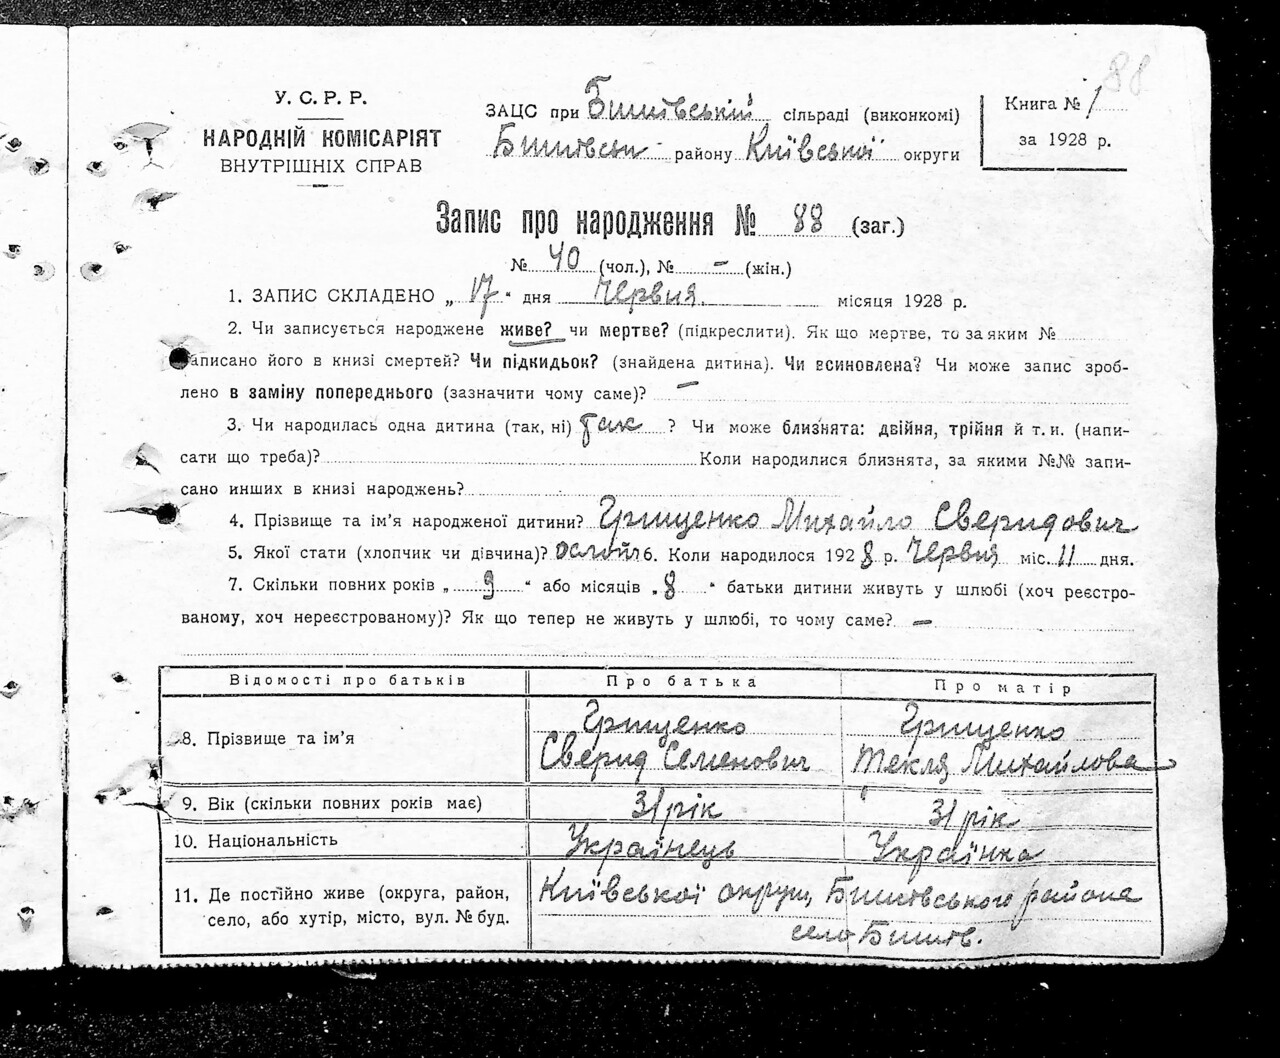 88
У. С. Р. Р.
НАРОДНІЙ КОМІСАРІЯТ
ВНУТРІШНІХ СПРАВ
ЗАЦС при Бишівській сільраді (виконкомі)
району Київської округи
Книга № 1
за 1928 р.
Запис про народження № 88 (заг.)
№ 40 (чол.), № – (жін.)
1. ЗАПИС СКЛАДЕНО „ 17 “ дня Червня місяця 1928 р.
2. Чи записується народжене живе? чи мертве? (підкреслити). Як що мертве, то за яким №
записано його в книзі смертей? Чи підкидьок? (знайдена дитина). Чи всиновлена? Чи може запис зроб-
лено в заміну попереднього (зазначити чому саме)? –
3. Чи народилась одна дитина (так, ні) так ? Чи може близнята: двійня, трійня й т. и. (напи-
сати що треба)? Коли народилися близнята, за якими №№ запи-
сано инших в книзі народжень?
4. Прізвище та ім’я народженої дитини? Грищенко Михайло Сверидович
5. Якої стати (хлопчик чи дівчина)? 6. Коли народилося 1928 р. Червня міс. 11 дня.
7. Скільки повних років „ 9 “ або місяців „ 8 “ батьки дитини живуть у шлюбі (хоч реєстро-
ваному, хоч нереєстрованому)? Як що тепер не живуть у шлюбі, то чому саме? –
Відомості про батьків Про батька Про матір
8. Прізвище та ім’я Грищенко Сверид Семенович Грищенко Текля Михайлова
9. Вік (скільки повних років має) 31 рік 31 рік
10. Національність Українець Українка
11. Де постійно живе (округа, район, Київської округи, Бишівського района
село, або хутір, місто, вул. № буд. село Бишів.